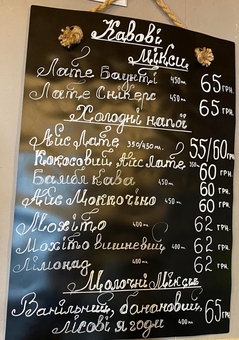 Кавові
Мікси
Лате Баунті 450м 65 грн.
Лате Снікерс 450м 65 грн.
Холодні напої
Айс Лате 350/450м. 55/60 грн.
Кокосовий Айс Лате 350 60 грн.
Бамбл Кава 450м 60 грн.
Айс Моккочіно 450м 60 грн.
Мохіто 400м 62 грн.
Мохіто вишневий 400м 62 грн.
Лімонад 400м 62 грн.
Молочні Мікси
Ванільний, банановий, 65 грн.
лісові ягоди 400м